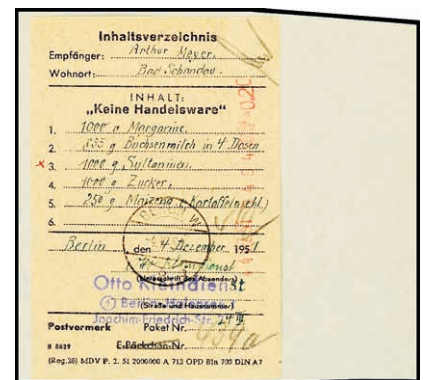 Inhaltsverzeichnis
Empfänger: Arthur Meyer.
Wohnort: Bad Schandau.
INHALT:
„Keine Handelsware"
1. 1000 g Margarine.
2. g Büchsenmilch in 4 Dosen
x 3. 1000 g Sultaninen.
4. 1000 g Zucker.
5. 250 g Maizena (Kartoffelmehl)
6.
Berlin den 4. Dezember 1951
(Unterschrift des Absenders)
Otto Kleindienst
(1) Berlin-
(Straße und Hausnummer)
Joachim-Friedrich-Str. 24 III
Postvermerk Paket Nr.
E-Päckchen-Nr.
(Reg.28) MDV P. 2. 51 2000000 A 713 OPD Bln 703 DIN A7